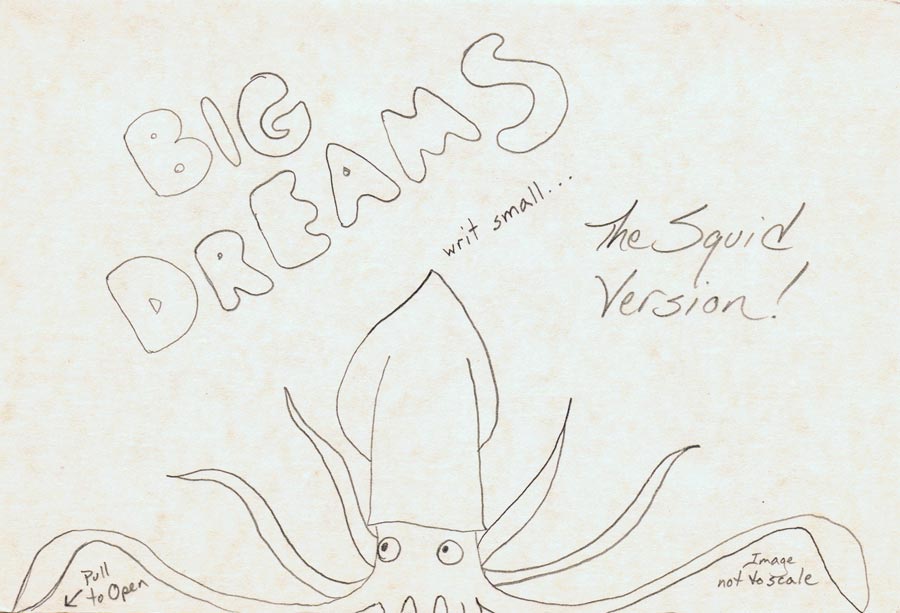 BIG
DREAMS
writ small...
The Squid
Version!
Pull
to Open
Image
not to scale